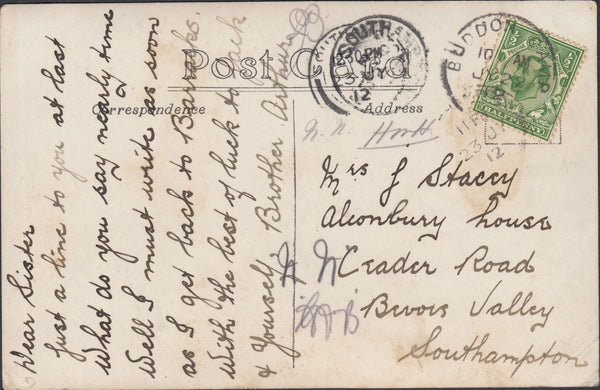 Post Card
Correspondence
Address
Dear Sister
Just a line to you at last
What do you say nearly time
Well I must write as soon
as I get back to Barracks.
With the best of luck to Jack
& Yourself. Brother Arthur
Mrs J Stacey
Alconbury House
Ceader Road
Bevois Valley
Southampton
SOUTHAMPTON
2.30 PM
JY
12
BUDDON
AM
JY
12
23 JY
12
HALFPENNY